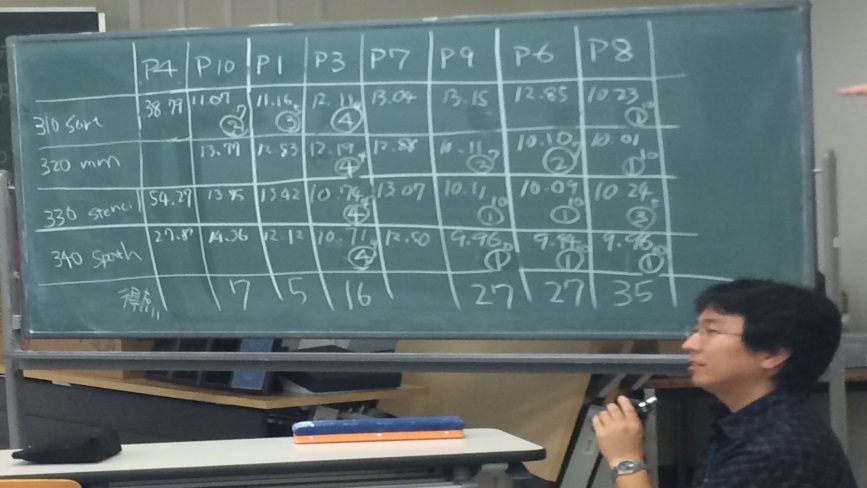 P4 P10 P1 P3 P7 P9 P6 P8
310 sort 38.79 11.07 7 ② 11.16 5 ③ 12.11 ④ 13.04 13.15 12.85 10.23 10 ①
320 mm 13.79 12.83 12.19 4 ④ 12.88 10.11 7 ② 10.10 7 ② 10.01 10 ①
330 stencil 54.27 13.85 13.42 10.74 4 ④ 13.07 10.11 10 ① 10.09 10 ① 10.24 5 ③
340 spath 27.87 14.36 12.12 10.71 4 ④ 12.50 9.96 10 ① 9.94 10 ① 9.96 10 ①
得点 7 5 16 27 27 35